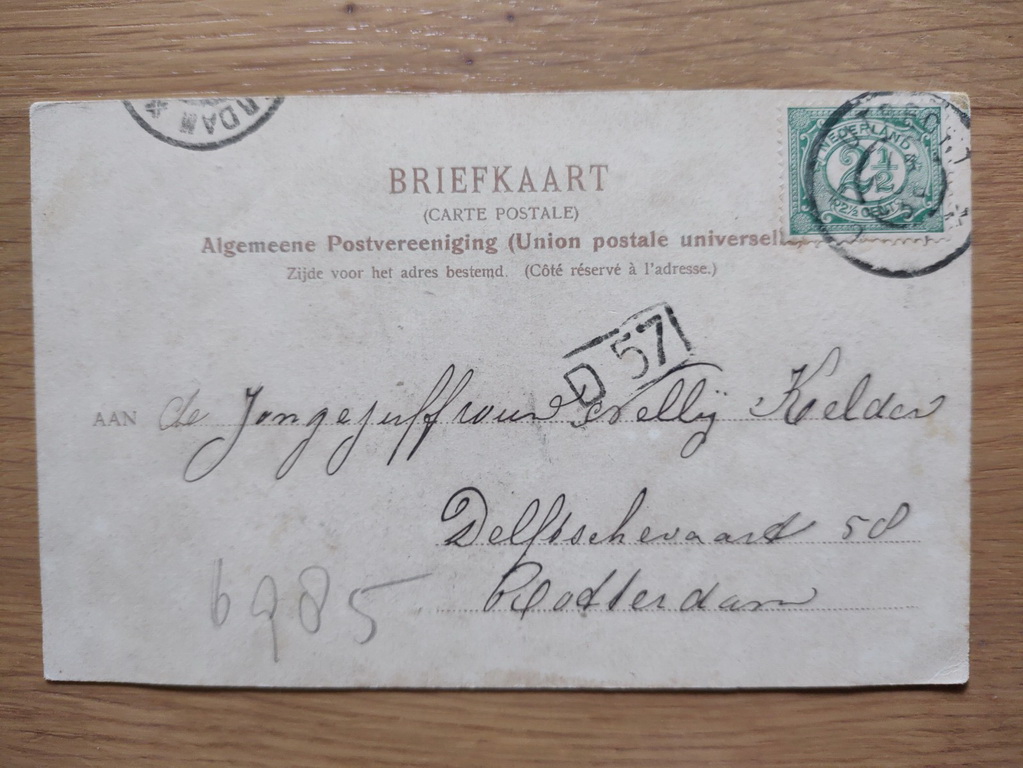 RDAM
NEDERLAND
2½
BRIEFKAART
(CARTE POSTALE)
Algemeene Postvereeniging (Union postale universell
Zijde voor het adres bestemd. (Côté réservé à l'adresse.)
D 57
AAN de Jongejuffrouw Nellij Kelder
Delftschevaart 58
Rotterdam
6985